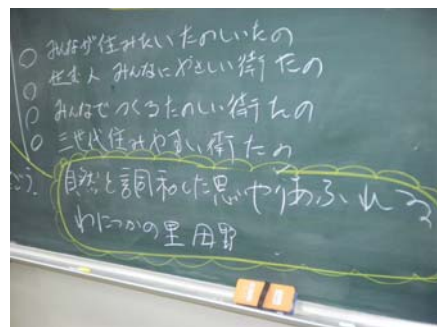 ○ みんなが住みたいたのしいたの
○ 住む人 みんなにやさしい街 たの
○ みんなでつくるたのしい街たの
○ 三世代住みやすい街たの
ごう.
自然と調和した思いやりあふれる
わにつかの里 田野